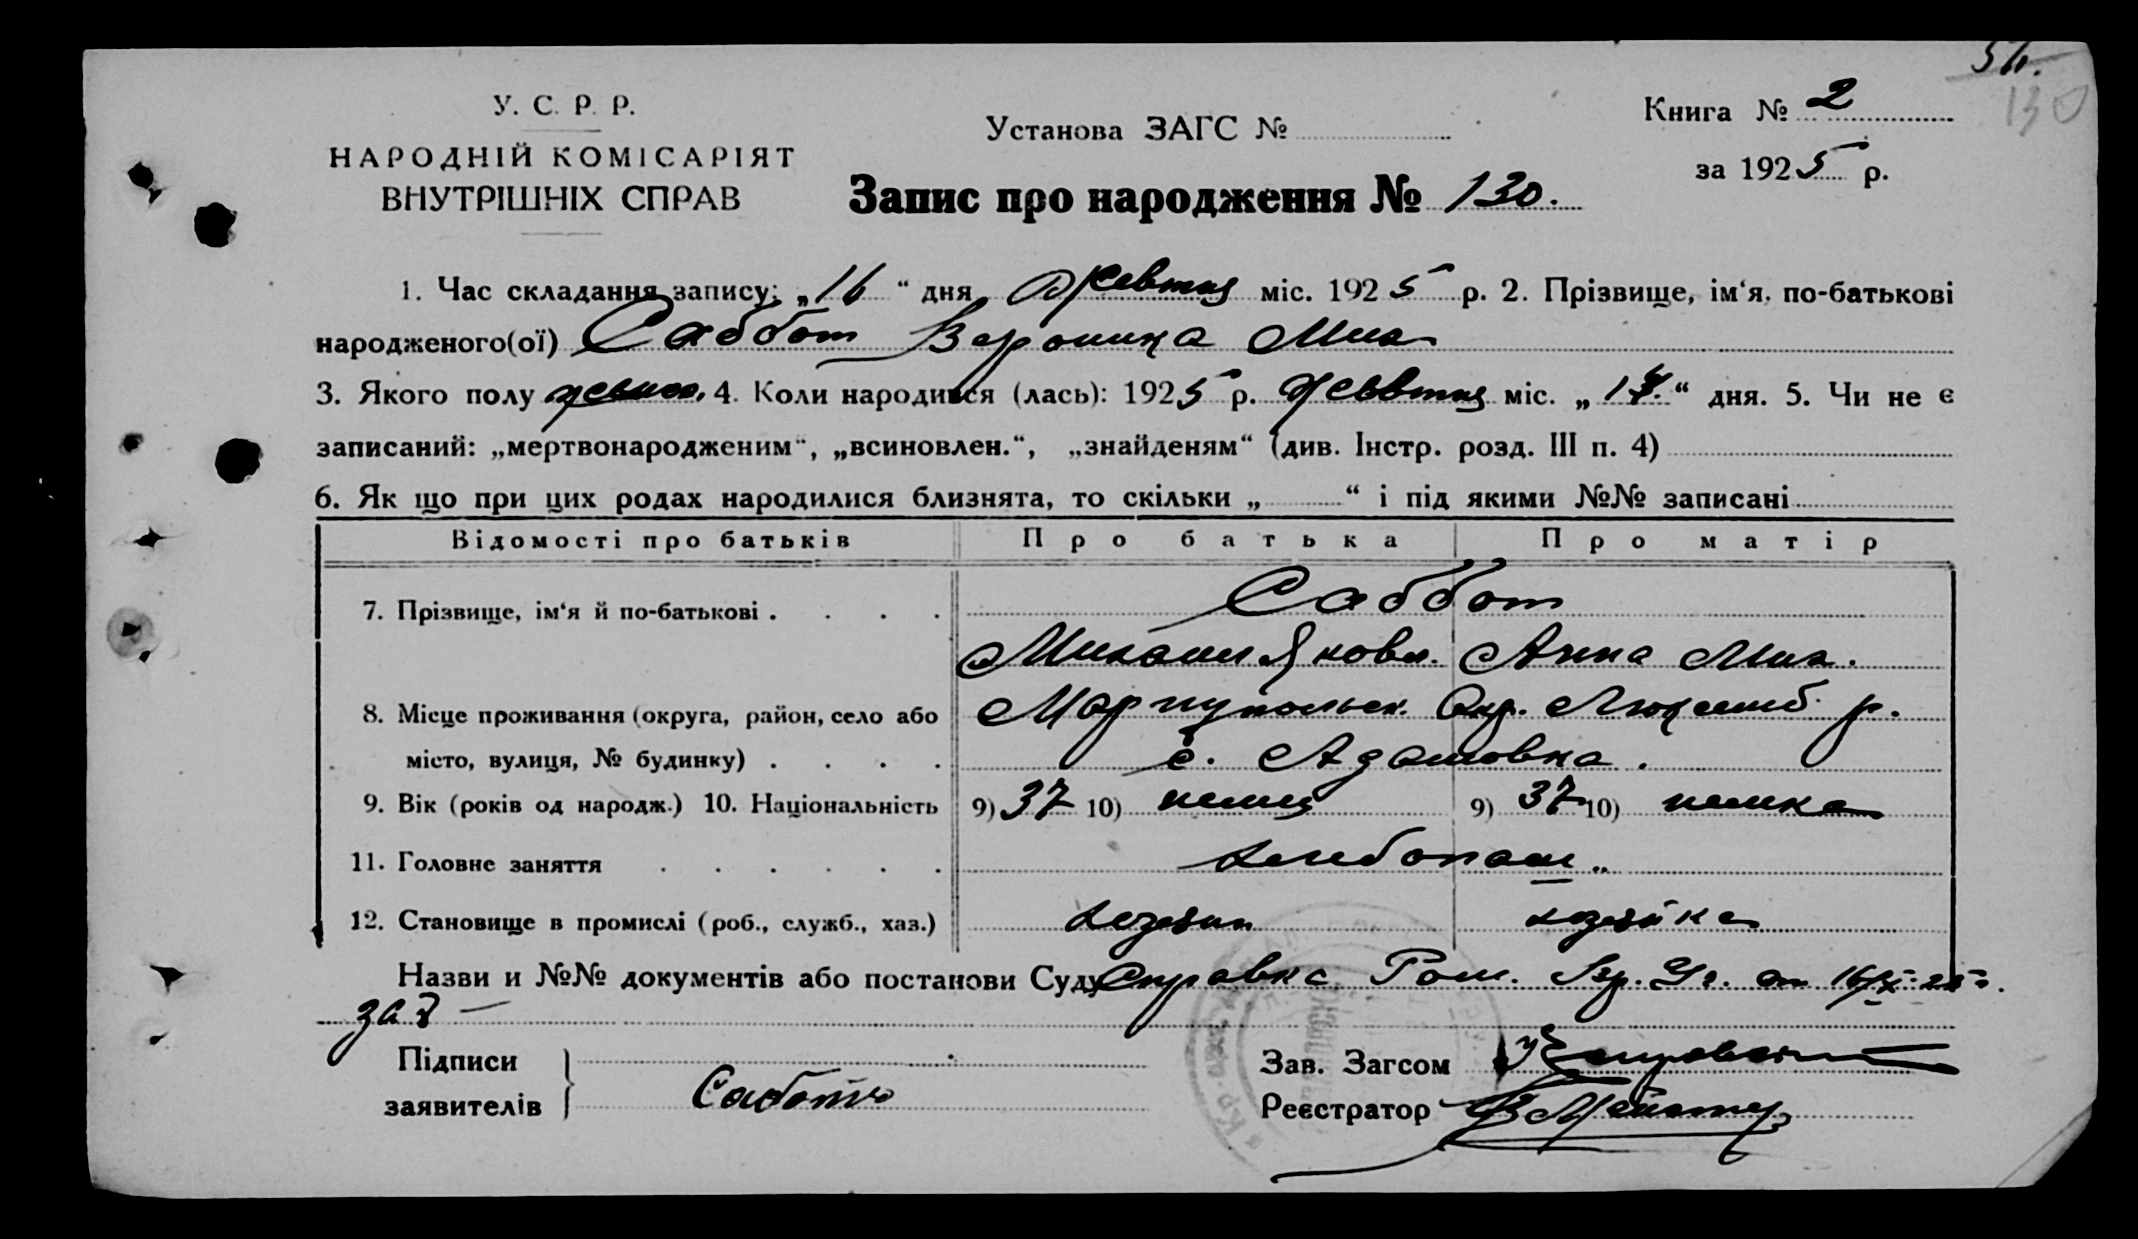 54.
130
У. С. Р. Р.
НАРОДНІЙ КОМІСАРІЯТ
ВНУТРІШНІХ СПРАВ
Установа ЗАГС №
Запис про народження № 130.
Книга № 2
за 1925 р.
1. Час складання запису: „16“ дня Жовтня міс. 1925 р. 2. Прізвище, ім‘я, по-батькові
народженого(ої) Саббот Вероника Мих
3. Якого полу 4. Коли народився (лась): 1925 р. жовтня міс. „ “ дня. 5. Чи не є
записаний: „мертвонародженим“, „всиновлен.“, „знайденям“ (див. Інстр. розд. III п. 4)
6. Як що при цих родах народилися близнята, то скільки „ “ і під якими №№ записані
Відомості про батьків Про батька Про матір
7. Прізвище, ім‘я й по-батькові . . . . Саббот
Михаил Яковл. Анна Мих.
8. Місце проживання (округа, район, село або Марпупольск. Окр. Люксемб. р.
місто, вулиця, № будинку) . . . . с. Адамовка.
9. Вік (років од народж.) 10. Національність 9) 37 10) немец 9) 37 10) немка
11. Головне заняття . . . . . . хлебопаш..
12. Становище в промислі (роб., служб., хаз.) хозяин хозяйка
Назви и №№ документів або постанови Суду Справка от 16/X-25 г.
за
Підписи
заявителів } Саббот
Зав. Загсом
Реєстратор